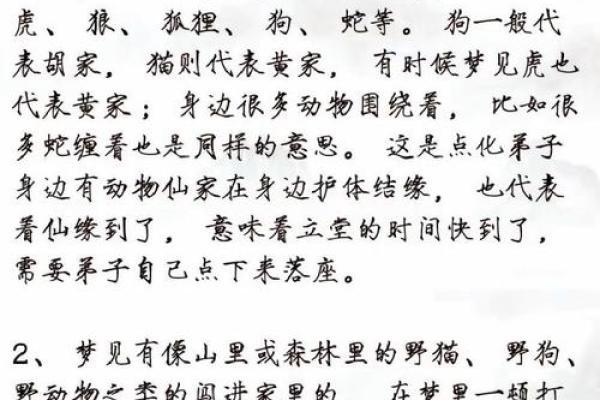 虎、狼、狐狸、狗、蛇等。狗一般代
表胡家，猫则代表黄家，有时候梦见虎也
代表黄家；身边很多动物围绕着，比如很
多蛇缠着也是同样的意思。这是点化弟子
身边有动物仙家在身边护体结缘，也代表
着仙缘到了，意味着立堂的时间快到了，
需要弟子自己点下来落座。
2、梦见有像山里或森林里的野猫、野狗、
野动物之类的闯进家里的，在梦里一顿打